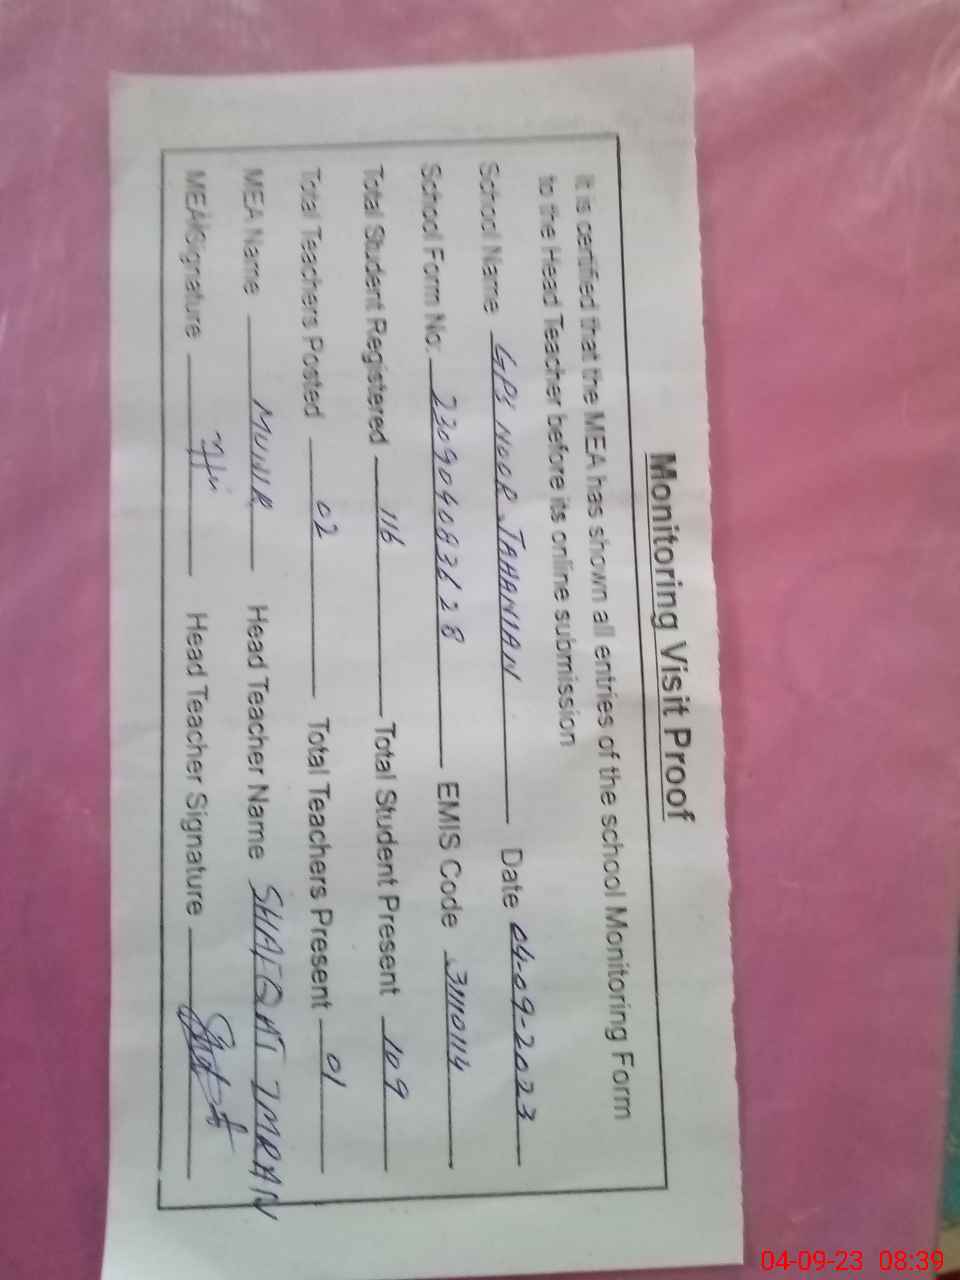 Monitoring Visit Proof
It is certified that the MEA has shown all entries of the school Monitoring Form
to the Head Teacher before its online submission
School Name GPS NOOR JAHANIAN Date 04-09-2023
School Form No: 230904083628 EMIS Code 31110114
Total Student Registered 116 Total Student Present 109
Total Teachers Posted 02 Total Teachers Present 01
MEA Name MUNIR Head Teacher Name SHAFQAT IMRAN
MEA Signature Head Teacher Signature
04-09-23 08:39